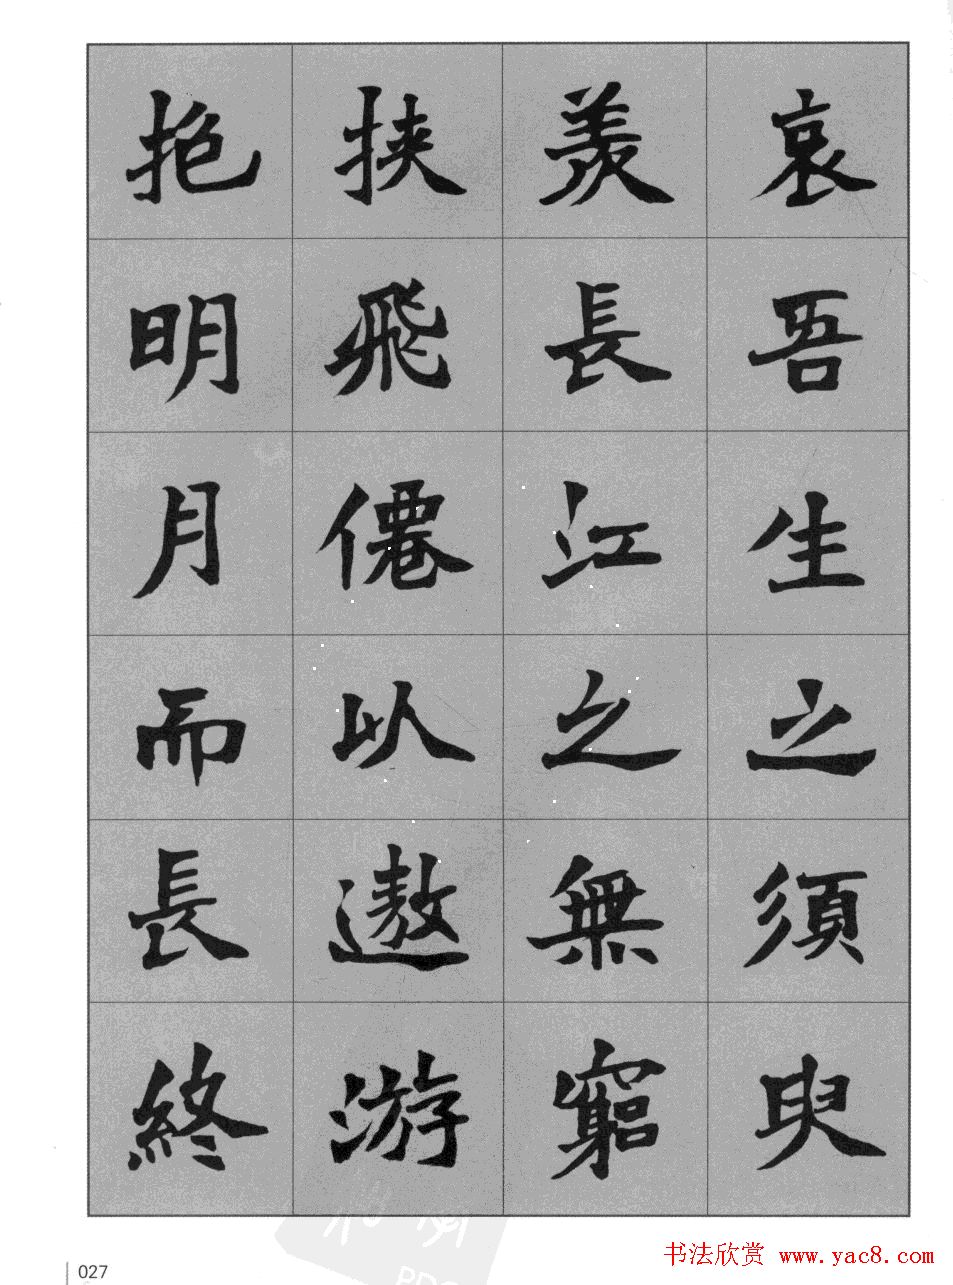 哀吾生之須臾
羨長江之無窮
挾飛僊以遨游
抱明月而長終
027
书法欣赏 www.yac8.com